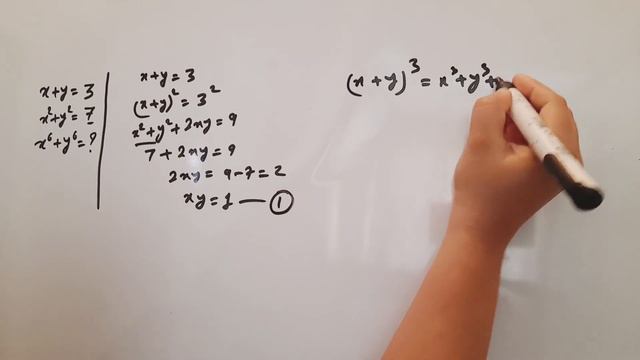 x+y=3
x²+y²=7
x⁶+y⁶=?
x+y=3
(x+y)²=3²
x²+y²+2xy=9
7+2xy=9
2xy=9-7=2
xy=1 — ①
(x+y)³=x³+y³+